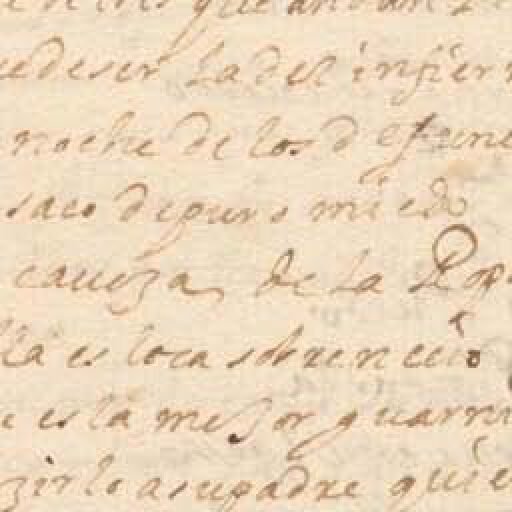 que andan
de ser la del infier
noche de los d efun
saco de puro miedo
caveza de la Rop
lla es loca sobre necia
e es la mejor guarni
zirlo a su padre quie